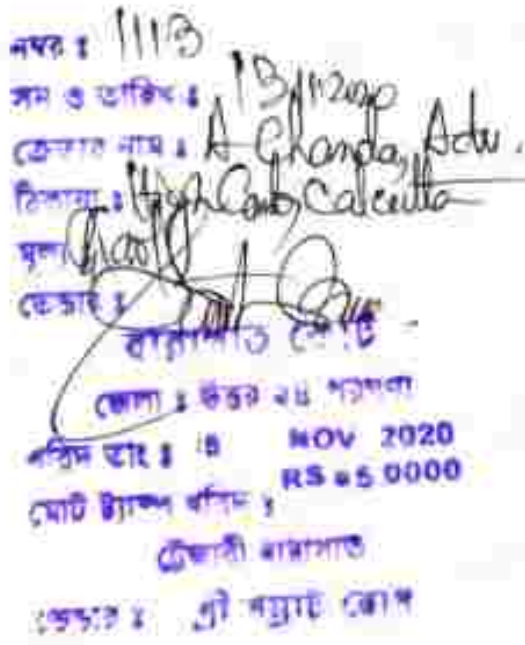 নম্বর : 1113
সন ও তারিখ : 13/11/2020
ক্রেতার নাম : A Chanda, Adv.
ঠিকানা : High Court, Calcutta
মূল্য
ভেন্ডার :
বারাসাত কোর্ট
জেলা : উত্তর ২৪ পরগণা
তাং : NOV 2020
RS 0000
মোট ষ্ট্যাম্প খরিদ :
ট্রেজারী বারাসাত
ভেন্ডার : শ্রী সম্রাট বোস